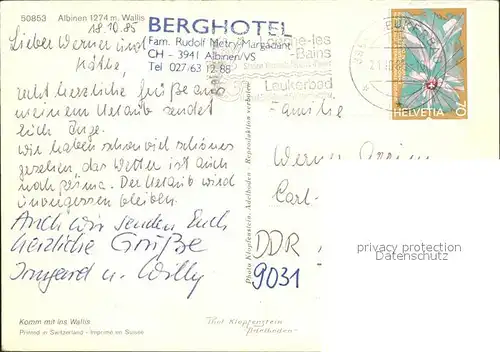 50853 Albinen 1274 m. Wallis
18.10.85
BERGHOTEL
Fam. Rudolf Metry-Margadant
CH - 3941 Albinen/VS
Tel 027/63 12 88
Loèche-les
-Bains
Leukerbad
HELVETIA 70
Lieber Werner und
Käthe,
recht herzliche Grüße aus
meinem Urlaub sendet
Euch Inge.
Wir haben schon viel schönes
gesehen, das Wetter ist auch
noch prima. Der Urlaub wird
unvergessen bleiben.
Auch wir senden Euch
herzliche Grüße
Irmgard u. Willy
Photo Klopfenstein, Adelboden - Reproduktion verboten
Familie
Werner
Carl-
DDR
9031
privacy protection
Datenschutz
Komm mit ins Wallis
Printed in Switzerland - Imprimé en Suisse
Phot Klopfenstein
Adelboden